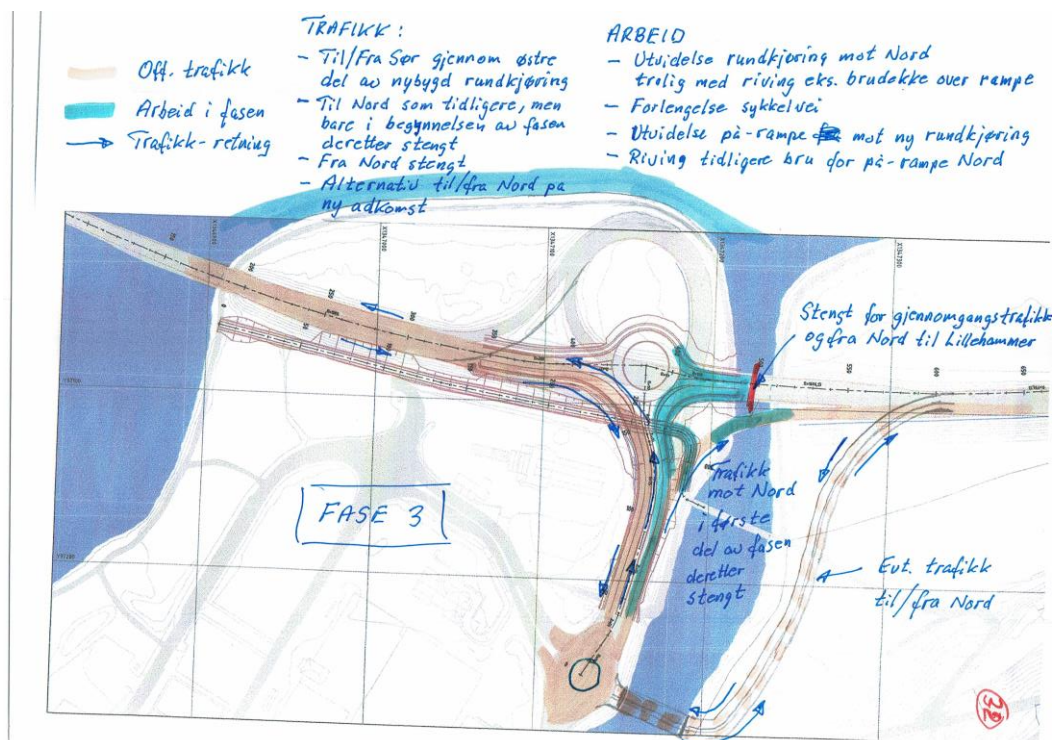 Off. trafikk
Arbeid i fasen
Trafikk-retning
TRAFIKK :
- Til/Fra Sør gjennom østre
del av nybygd rundkjøring
- Til Nord som tidligere, men
bare i begynnelsen av fasen
deretter stengt
- Fra Nord stengt
- Alternativ til/fra Nord på
ny adkomst
ARBEID
- Utvidelse rundkjøring mot Nord
trolig med riving eks. brudekke over rampe
- Forlengelse sykkelvei
- Utvidelse på-rampe mot ny rundkjøring
- Riving tidligere bru for på-rampe Nord
Stengt for gjennomgangstrafikk
og fra Nord til Lillehammer
FASE 3
Trafikk
mot Nord
i første
del av fasen
deretter
stengt
Evt. trafikk
til/fra Nord
32